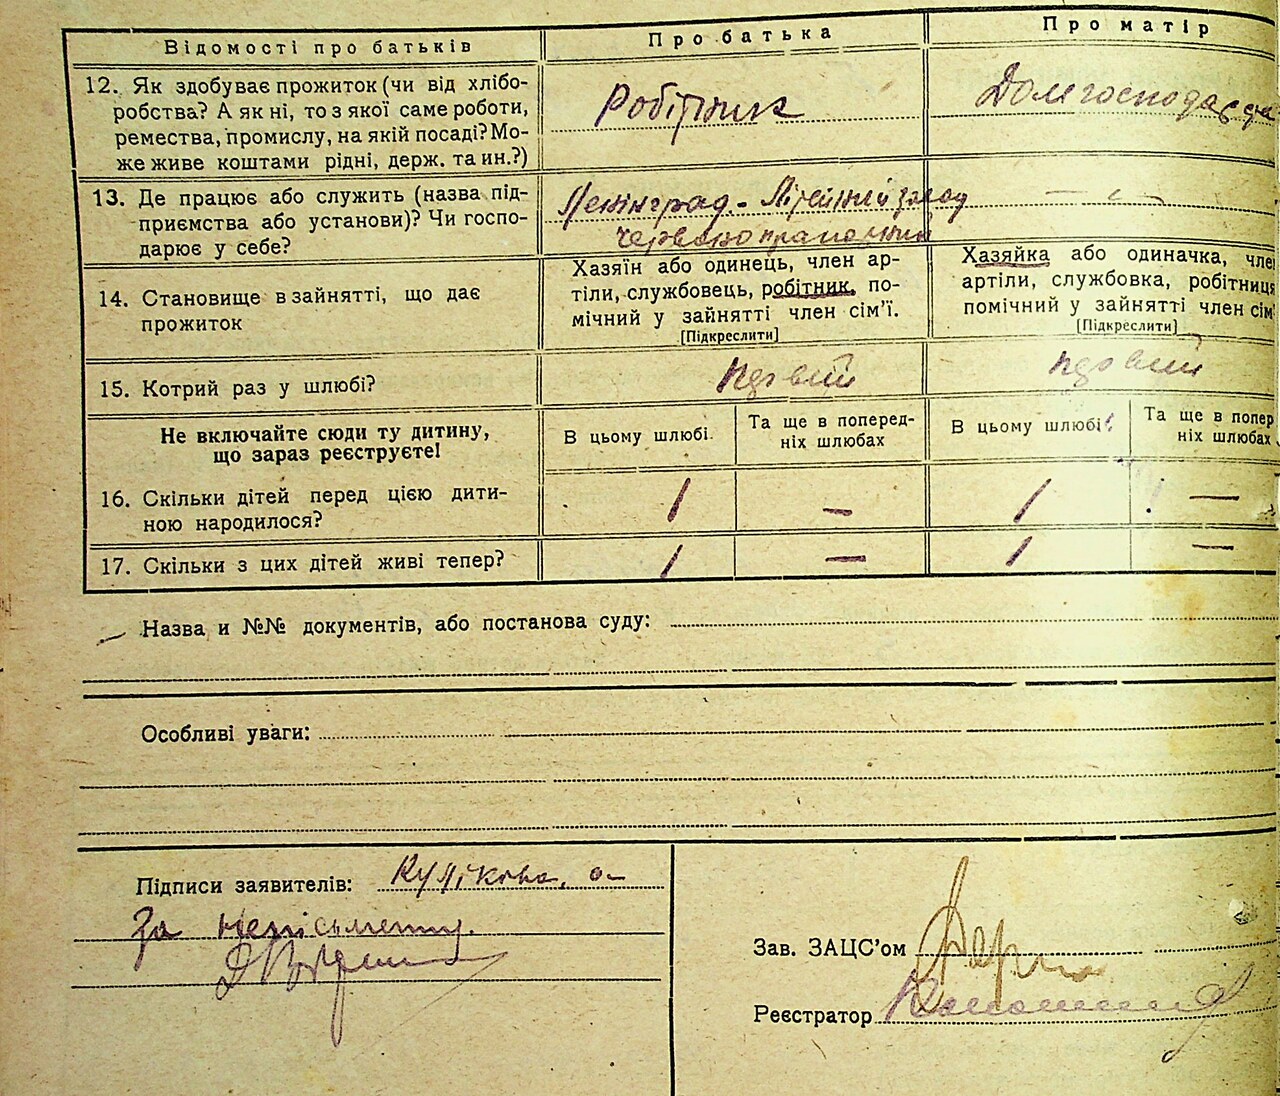 Відомості про батьків
Про батька
Про матір
12. Як здобуває прожиток (чи від хлібо-
робства? А як ні, то з якої саме роботи,
ремества, промислу, на якій посаді? Мо-
же живе коштами рідні, держ. та ин.?)
Робітник
Домгосподарка
13. Де працює або служить (назва під-
приємства або установи)? Чи госпо-
дарює у себе?
Ленінград. - Літейний завод
Червонопрапорник
— " —
14. Становище в зайнятті, що дає
прожиток
Хазяїн або одинець, член ар-
тіли, службовець, робітник, по-
мічний у зайнятті член сім'ї.
[Підкреслити]
Хазяйка або одиначка, член
артіли, службовка, робітниця
помічний у зайнятті член сім'
[Підкреслити]
15. Котрий раз у шлюбі?
первий
первий
Не включайте сюди ту дитину,
що зараз реєструєте!
В цьому шлюбі.
Та ще в поперед-
ніх шлюбах
В цьому шлюбі
Та ще в попер
ніх шлюбах
16. Скільки дітей перед цією дити-
ною народилося?
1
—
1
—
17. Скільки з цих дітей живі тепер?
1
—
1
—
Назва и №№ документів, або постанова суду:
Особливі уваги:
Підписи заявителів: Кулікова, а
За неписьменну
Зав. ЗАЦС'ом
Реєстратор